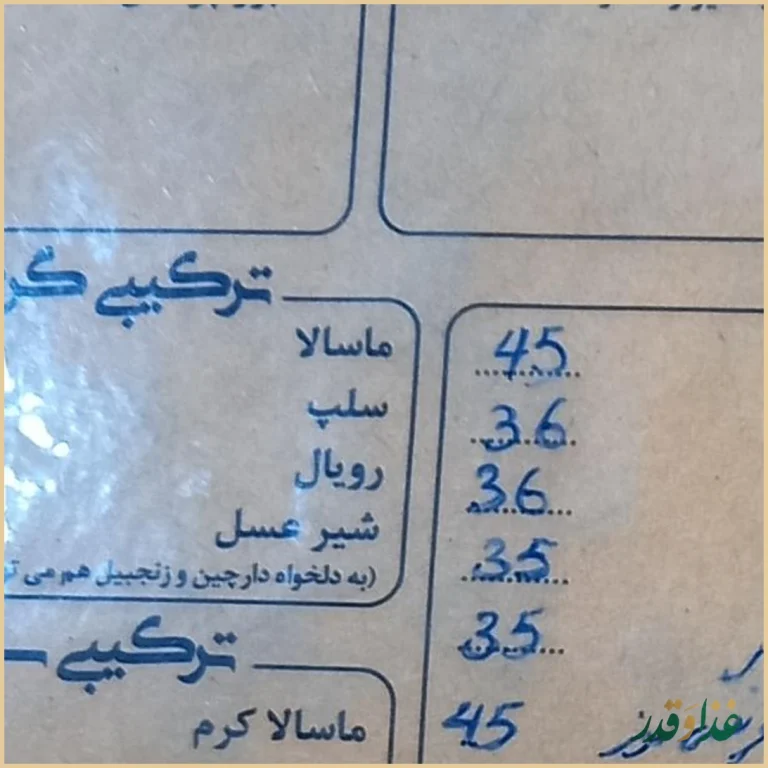 ترکیبی
ماسالا
سلپ
رویال
شیر عسل
(به دلخواه دارچین و زنجبیل هم می
ترکیبی
ماسالا کرم
45
36
36
35
35
45
غذا و قدر